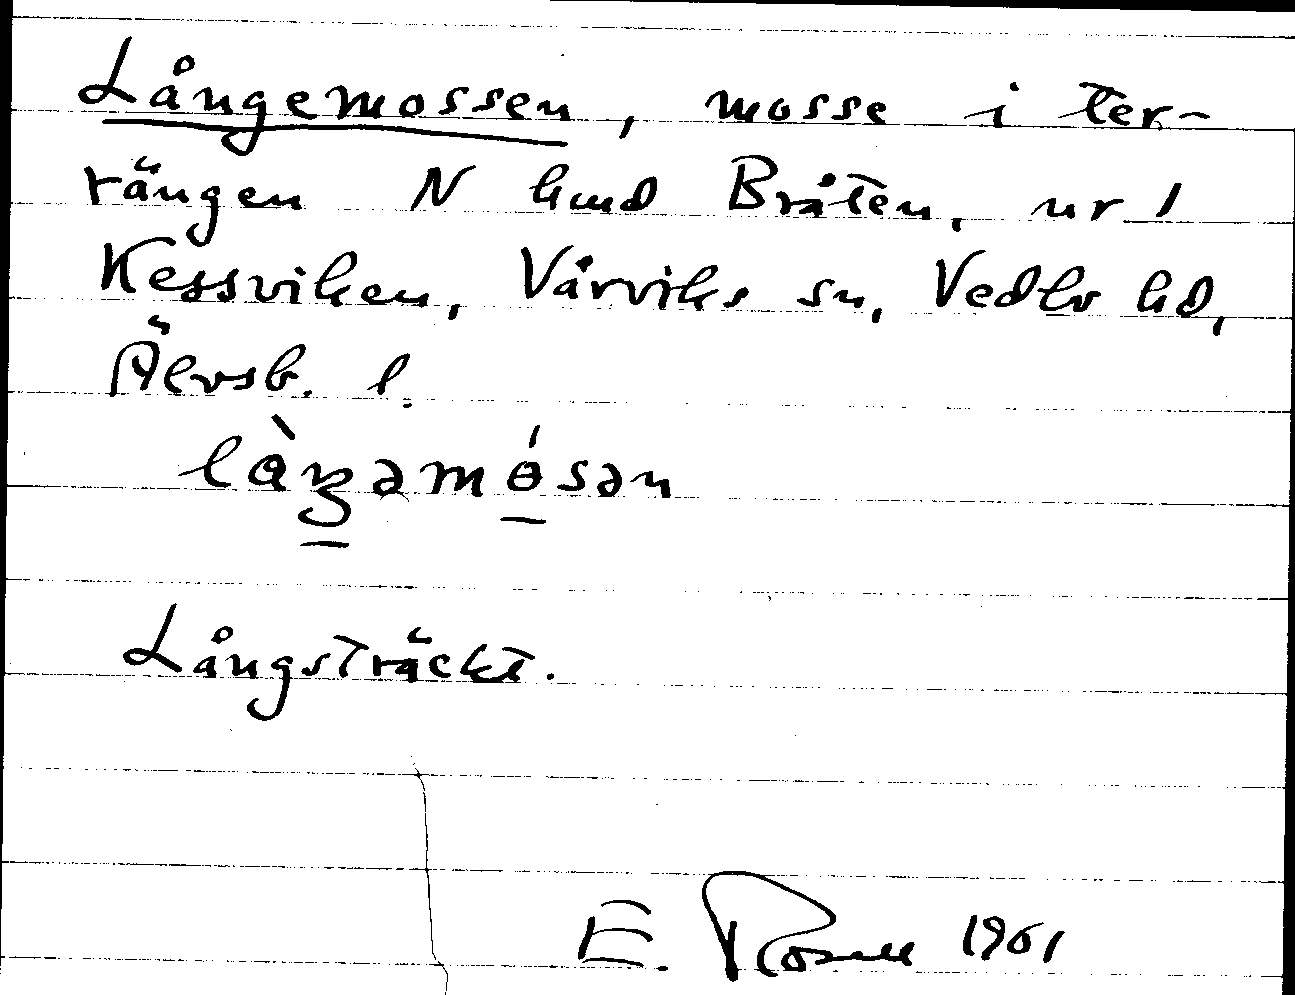 Långemossen, mosse i ter-
rängen N hmd Bråten, nr 1
Kessviken, Vårviks sn, Vedbo hd,
Älvsb. l.
Långsträckt.
E. Rosell 1961